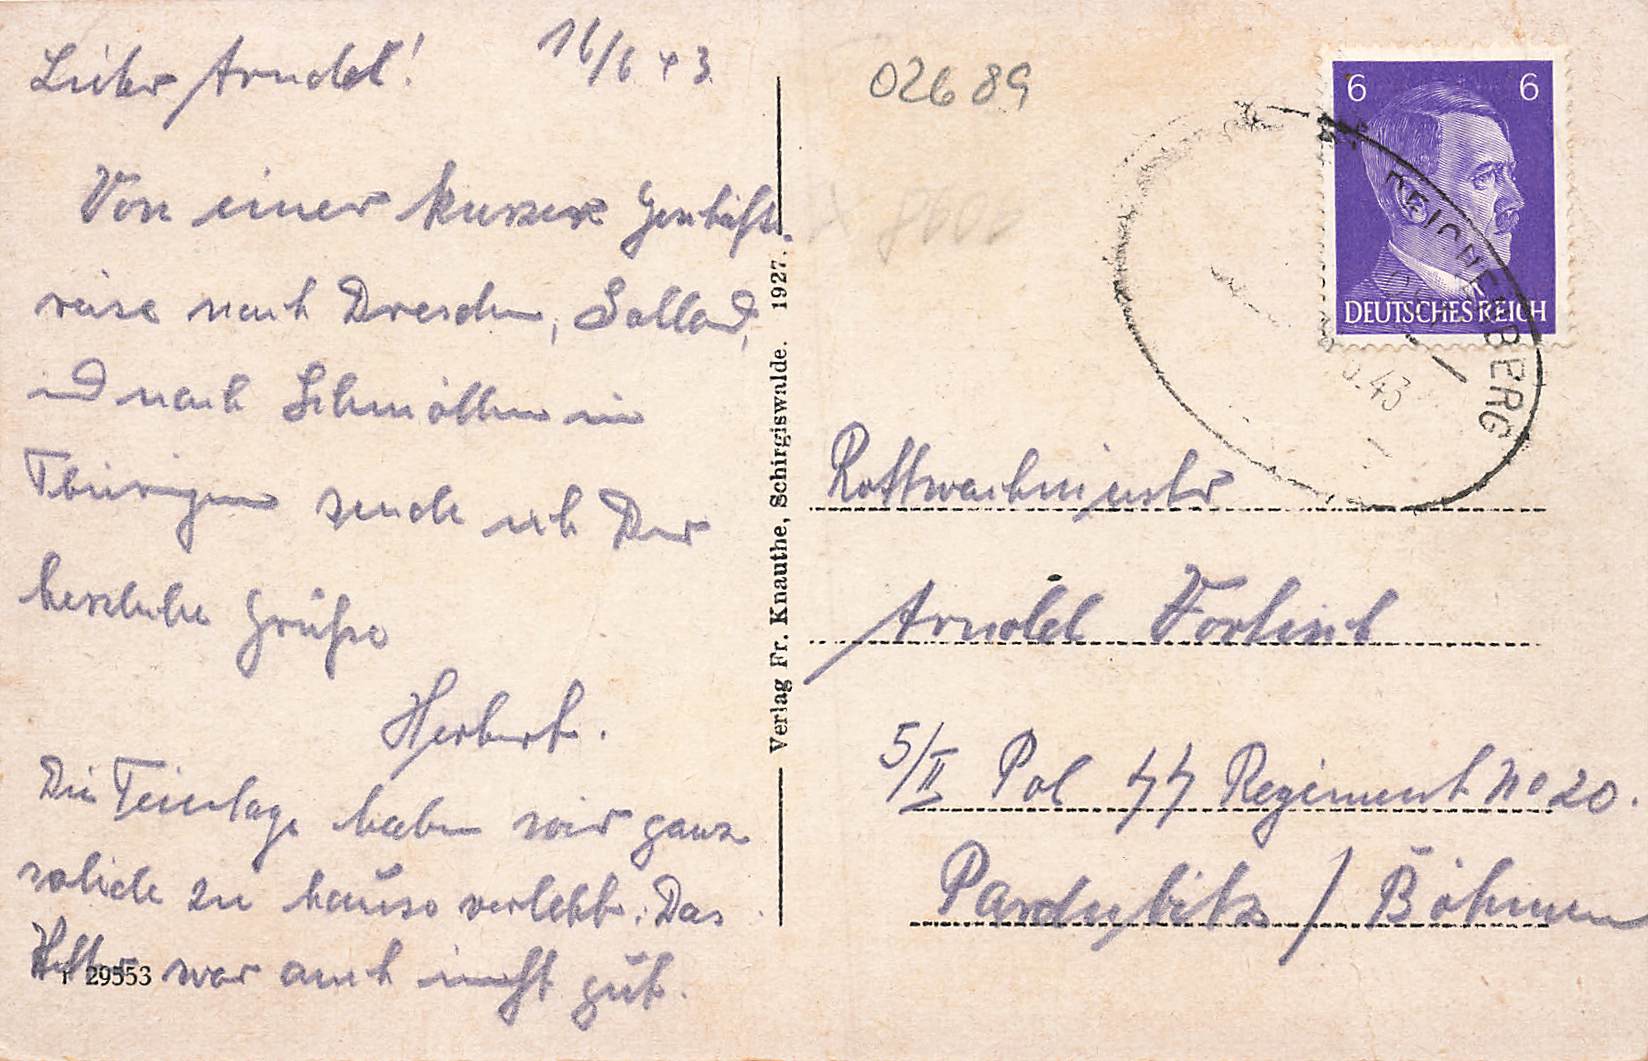 Lieber Arnold! 16/6 43.
Von einer kurzen Geschäfts-
reise nach Dresden,
und nach Schmölln in
Thüringen sende ich Dir
herzliche Grüße
Herbert.
Die Feiertage haben wir ganz
solide zu hause verlebt. Das
Wetter war auch nicht gut.
r 29553
Verlag Fr. Knauthe, Schirgiswalde. 1927.
02689
6 6
DEUTSCHES REICH
REICHENBERG
.43
Rottwachmeister
Arnold
5/II Pol SS Regiment No 20.
Pardubitz / Böhmen